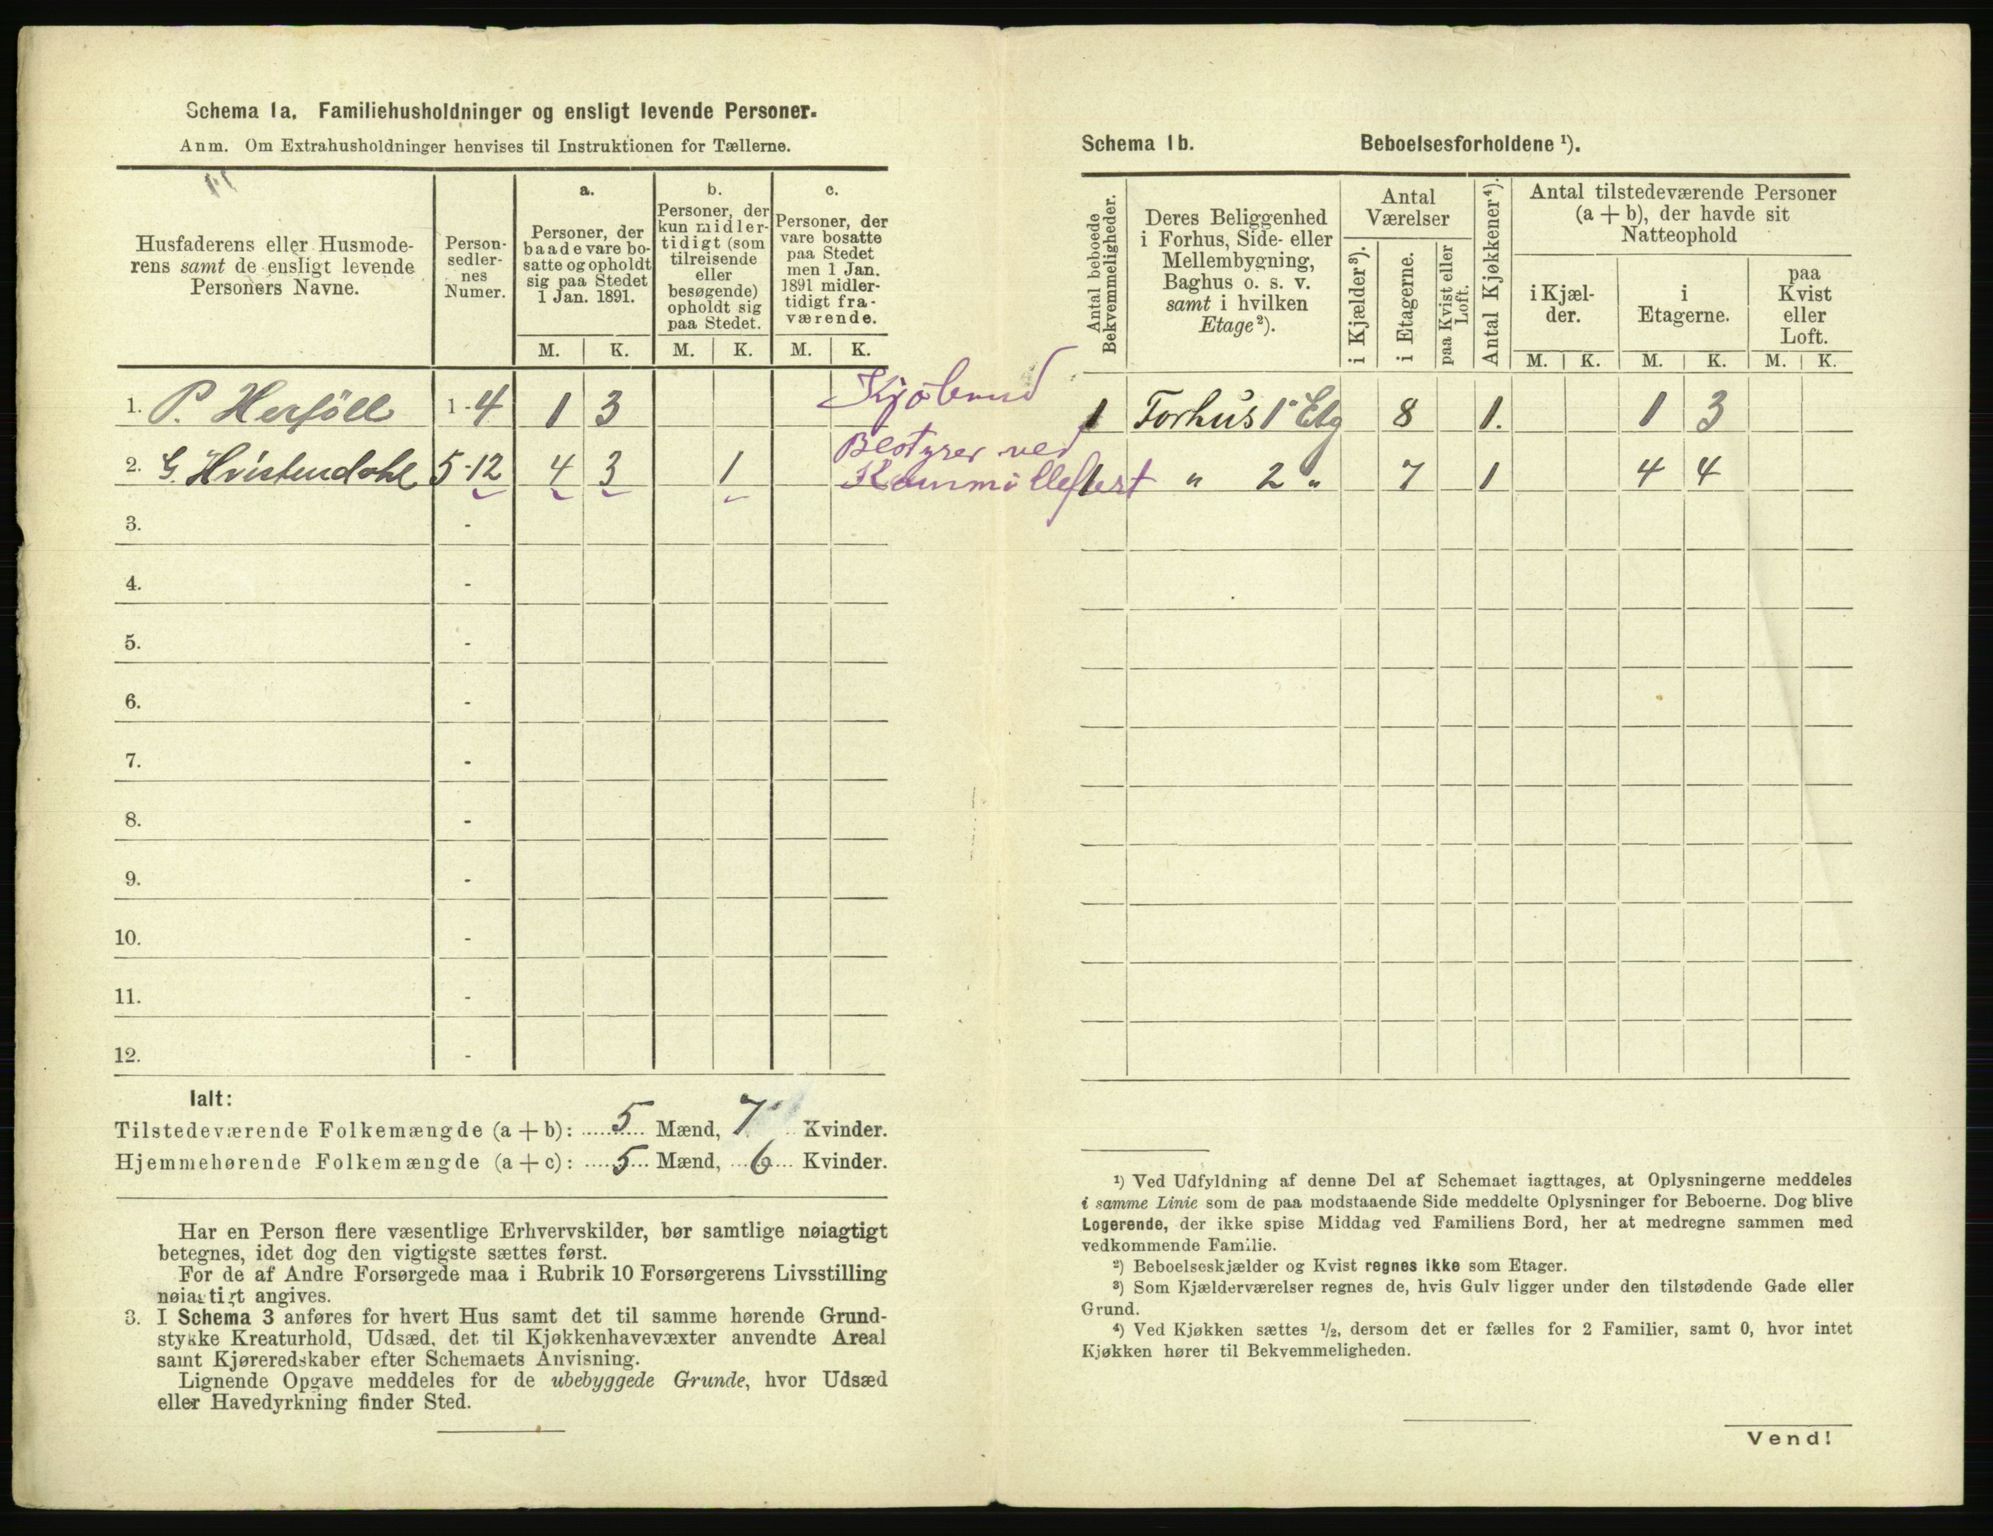 Schema 1a. Familiehusholdninger og ensligt levende Personer.
Anm. Om Extrahusholdninger henvises til Instruktionen for Tællerne.
Husfaderens eller Husmode-
rens samt de ensligt levende
Personers Navne.
Person-
sedler-
nes
Numer.
a.
Personer, der
baade vare bo-
satte og opholdt
sig paa Stedet
1 Jan. 1891.
b.
Personer, der
kun midler-
tidigt (som
tilreisende
eller
besøgende)
opholdt sig
paa Stedet.
c.
Personer, der
vare bosatte
paa Stedet
men 1 Jan.
1891 midler-
tidigt fra-
værende.
M. K. M. K. M. K.
1. P. Herföll 1-4 1 3
2. G. Hvistendahl 5-12 4 3 1
Bestyrer ved
3. -
4. -
5. -
6. -
7. -
8. -
9. -
10. -
11. -
12. -
Ialt:
Tilstedeværende Folkemængde (a + b): 5 Mænd, 7 Kvinder.
Hjemmehørende Folkemængde (a + c): 5 Mænd, 6 Kvinder.
Har en Person flere væsentlige Erhvervskilder, bør samtlige nøiagtigt
betegnes, idet dog den vigtigste sættes først.
For de af Andre Forsørgede maa i Rubrik 10 Forsørgerens Livsstilling
nøiagtigt angives.
3. I Schema 3 anføres for hvert Hus samt det til samme hørende Grund-
stykke Kreaturhold, Udsæd, det til Kjøkkenhavevæxter anvendte Areal
samt Kjøreredskaber efter Schemaets Anvisning.
Lignende Opgave meddeles for de ubebyggede Grunde, hvor Udsæd
eller Havedyrkning finder Sted.
Schema 1b. Beboelsesforholdene ¹).
Antal beboede
Bekvemmeligheder.
Deres Beliggenhed
i Forhus, Side- eller
Mellembygning,
Baghus o. s. v.
samt i hvilken
Etage ²).
Antal
Værelser
i Kjælder ³).
i Etagerne.
paa Kvist eller
Loft.
Antal Kjøkkener ⁴).
Antal tilstedeværende Personer
(a + b), der havde sit
Natteophold
i Kjæl-
der.
i
Etagerne.
paa
Kvist
eller
Loft.
M. K. M. K. M. K.
1 Forhus 1ˢ Etg 8 1. 1 3
1 " 2 " 7 1 4 4
¹) Ved Udfyldning af denne Del af Schemaet iagttages, at Oplysningerne meddeles
i samme Linie som de paa modstaaende Side meddelte Oplysninger for Beboerne. Dog blive
Logerende, der ikke spise Middag ved Familiens Bord, her at medregne sammen med
vedkommende Familie.
²) Beboelseskjælder og Kvist regnes ikke som Etager.
³) Som Kjælderværelser regnes de, hvis Gulv ligger under den tilstødende Gade eller
Grund.
⁴) Ved Kjøkken sættes ½, dersom det er fælles for 2 Familier, samt 0, hvor intet
Kjøkken hører til Bekvemmeligheden.
Vend!